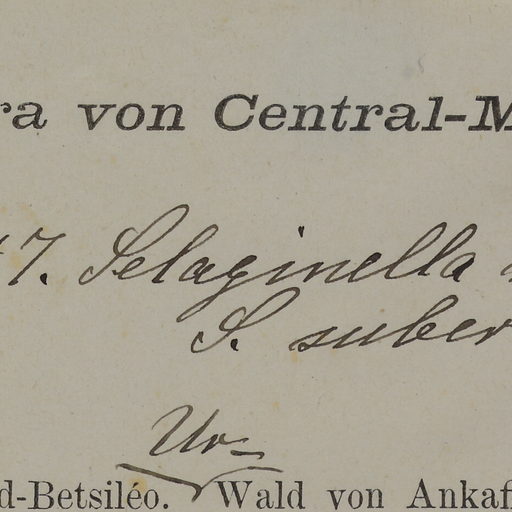 ra von Central-M
47. Selaginella
S. suber
Ur-
d-Betsiléo. Wald von Ankaf